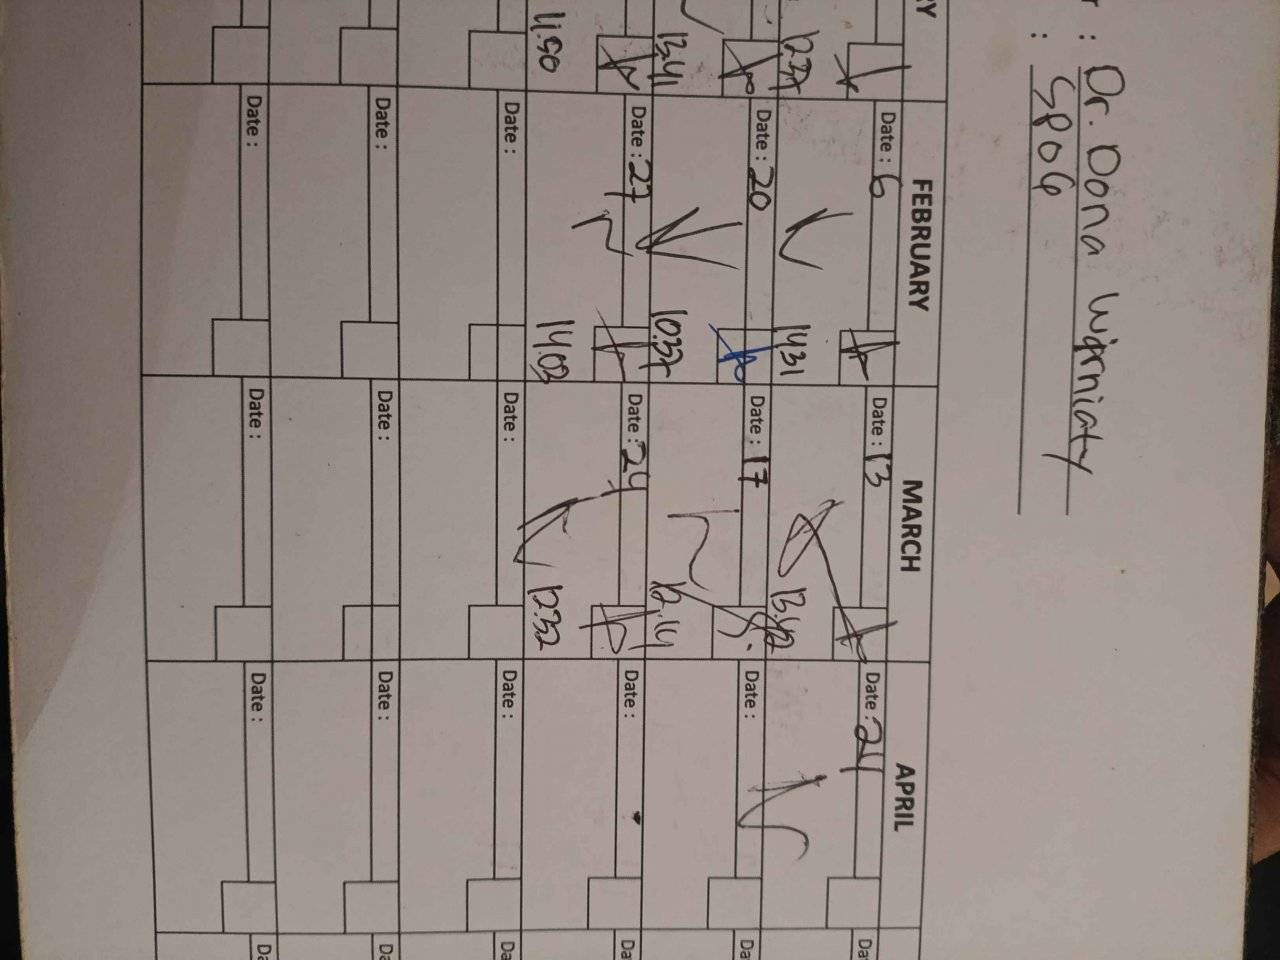 : Dr. Dona Wirniaty
: SPOG
RY FEBRUARY MARCH APRIL
Date : 6 Date : 13 Date : 24 Dat
12.37 14.31 13.42
Date : 20 Date : 17 Date : Da
13.41 10.37 12.14
Date : 27 Date : 24 Date : Da
11.50 14.03 12.32
Date : Date : Date : Da
Date : Date : Date : Da
Date : Date : Date : Da